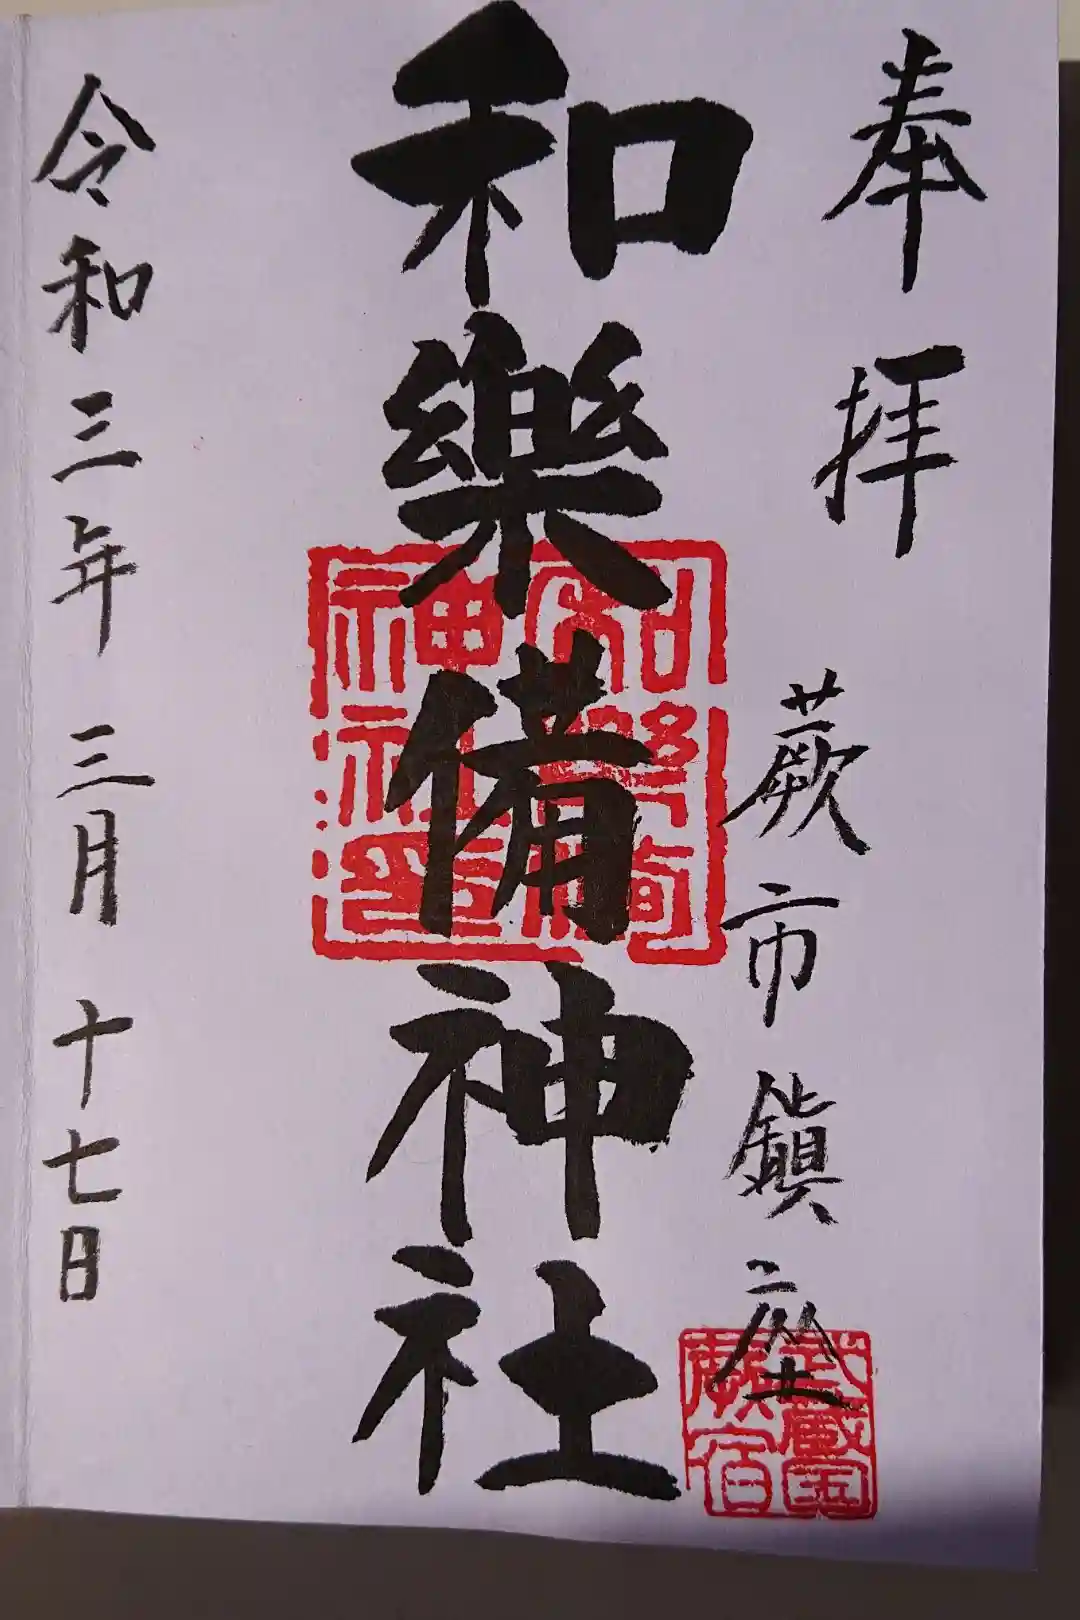 奉拝
蕨市鎮座
武蔵国
蕨宿
和樂備神社
和樂備
神社印
令和三年三月十七日